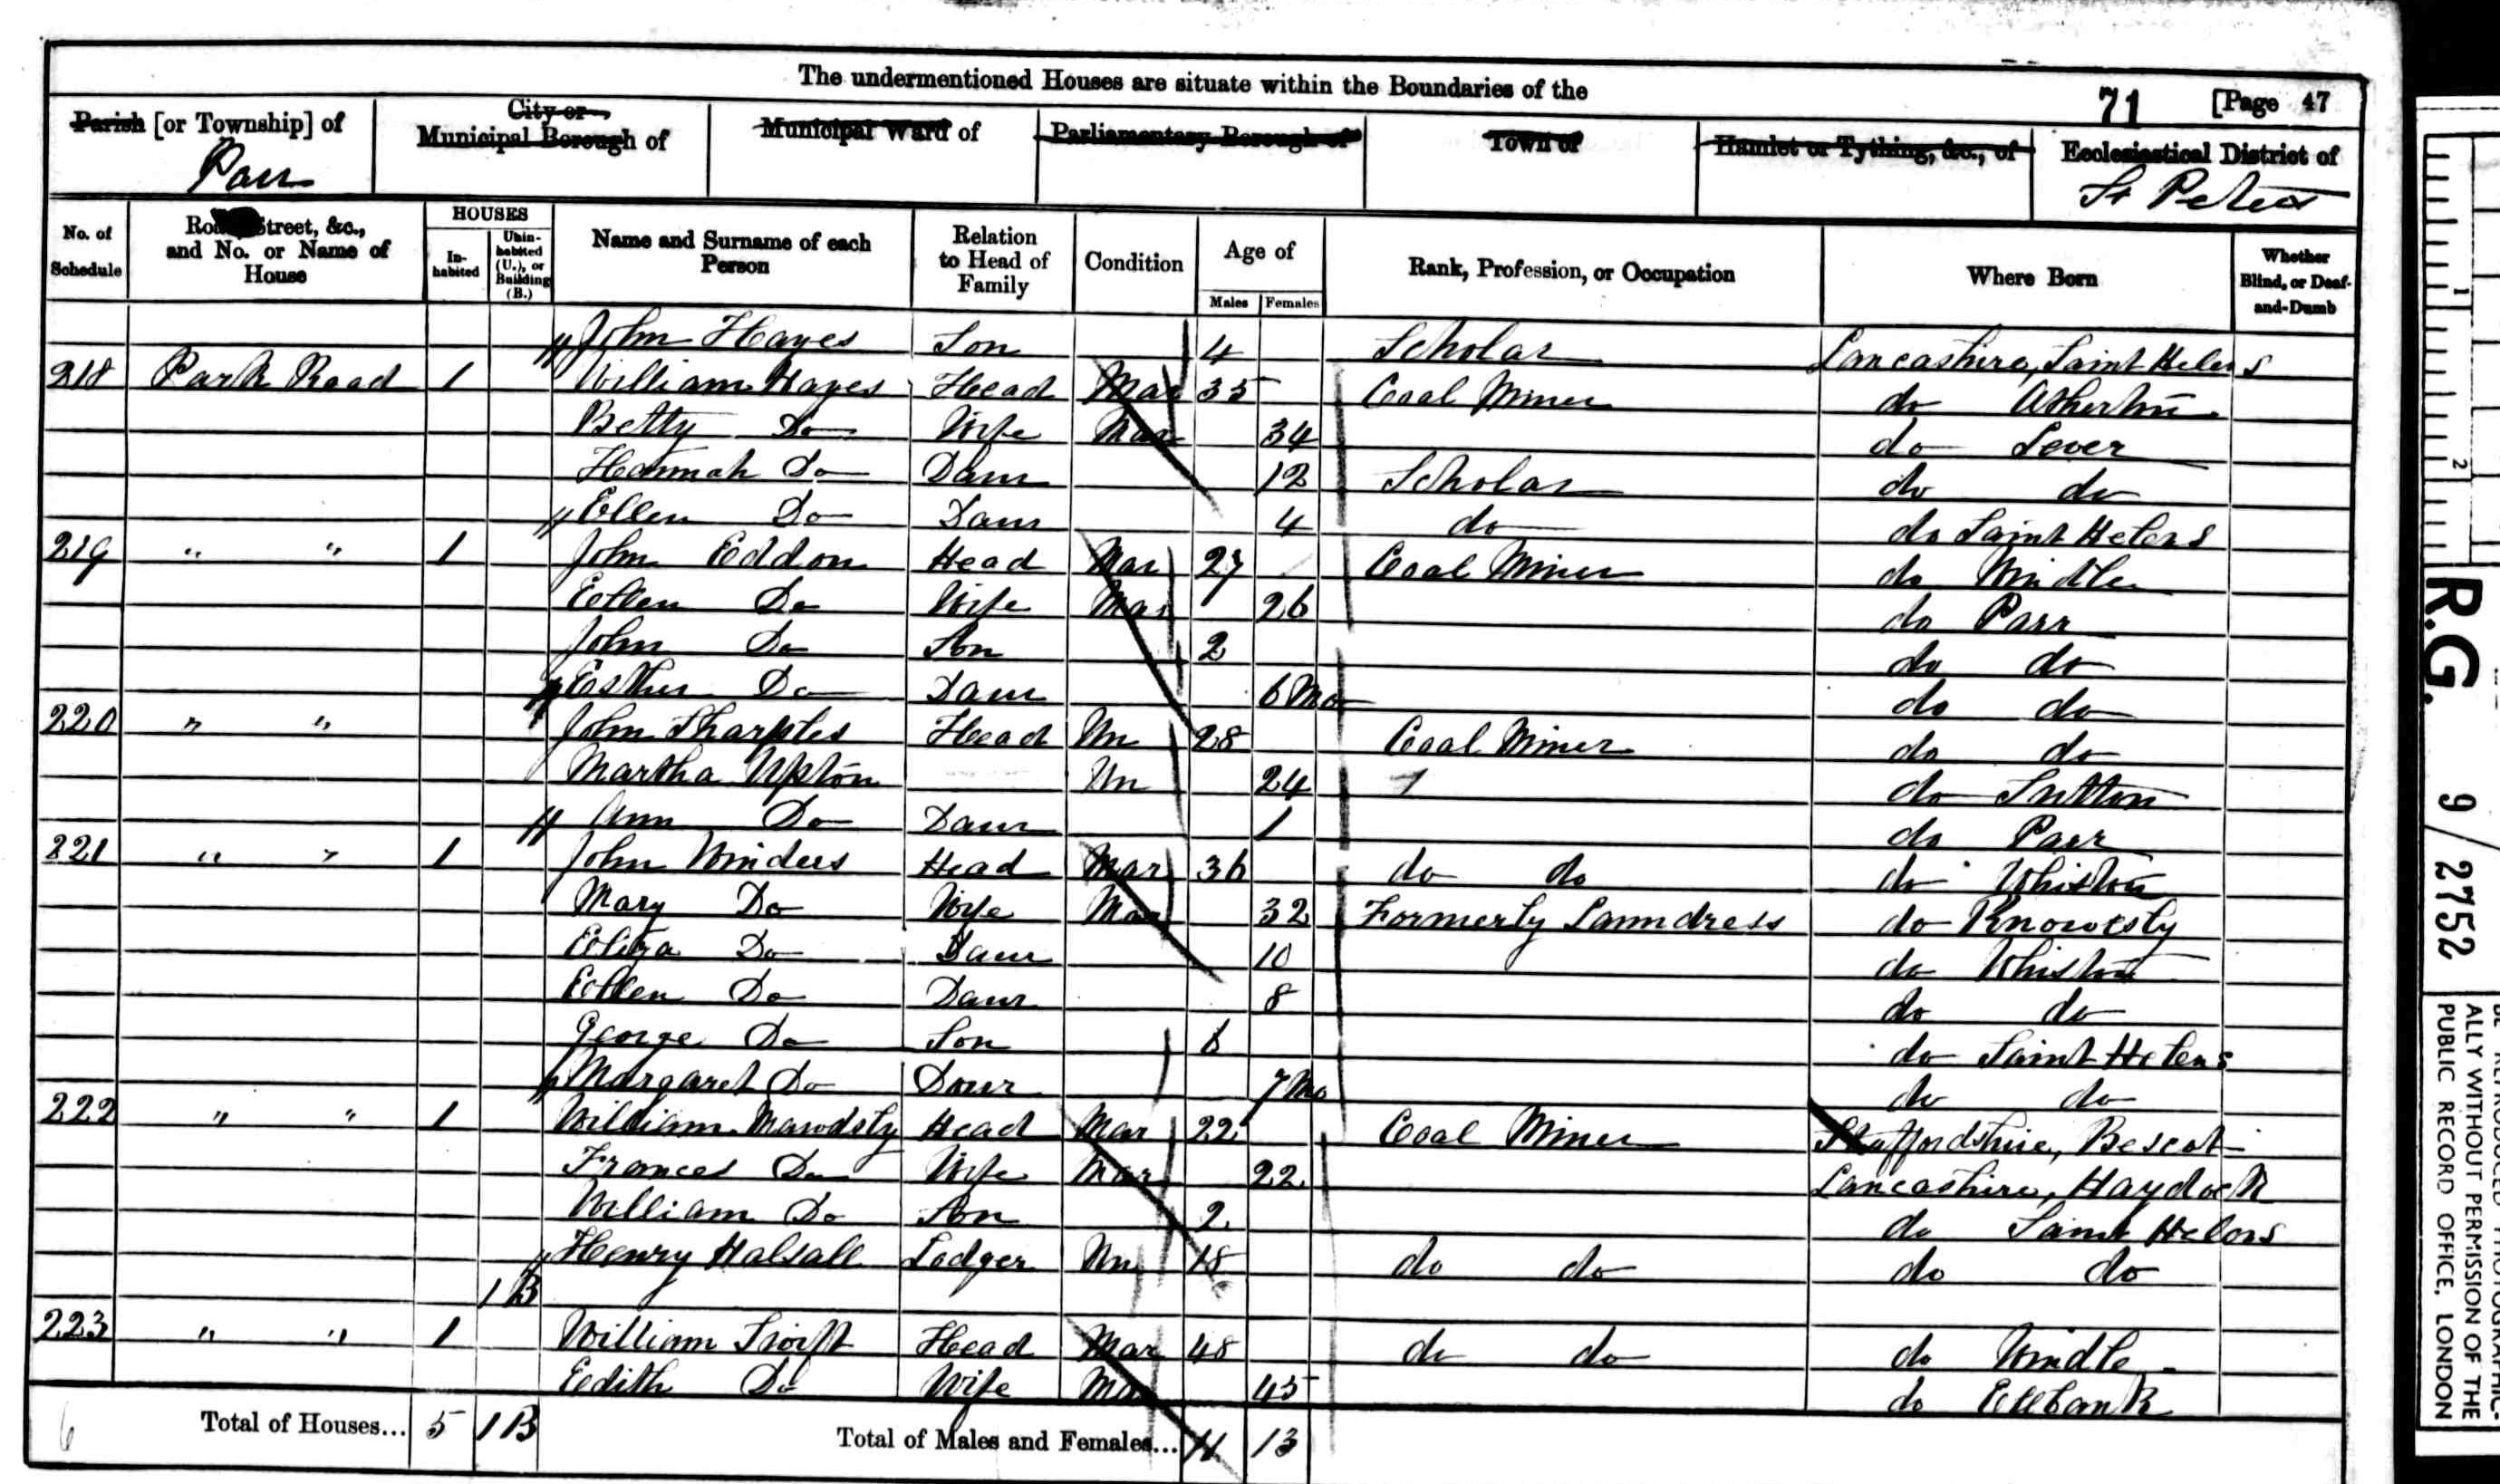 The undermentioned Houses are situate within the Boundaries of the
71 [Page 47
Parish [or Township] of Parr
City or Municipal Borough of
Municipal Ward of
Parliamentary Borough of
Town of
Hamlet or Tything, &c., of
Ecclesiastical District of St Peters
No. of Schedule
Street, &c., and No. or Name of House
HOUSES
In-habited
Unin-habited (U.), or Building (B.)
Name and Surname of each Person
Relation to Head of Family
Condition
Age of
Males Females
Rank, Profession, or Occupation
Where Born
Whether Blind, or Deaf-and-Dumb
John Hayes Son 4 Scholar Lancashire, Saint Helens
218 Park Road 1 William Hayes Head Mar 35 Coal Miner do Atherton
Betty Do Wife Mar 34 do Lever
Hannah Do Daur 12 Scholar do do
Ellen Do Daur 4 do do Saint Helens
219 " " 1 John Eddon Head Mar 27 Coal Miner do Windle
Ellen Do Wife Mar 26 do Parr
John Do Son 2 do do
Esther Do Daur 6 Mo do do
220 " " John Sharples Head Un 28 Coal Miner do do
Martha Upton Un 24 do Sutton
Ann Do Daur 1 do Parr
221 " " 1 John Winders Head Mar 36 do do do Whiston
Mary Do Wife Mar 32 Formerly Laundress do Knowesly
Eliza Do Daur 10 do Whiston
Ellen Do Daur 8 do do
George Do Son 6 do Saint Helens
Margaret Do Daur 7 Mo do do
222 " " 1 William Mawdsly Head Mar 22 Coal Miner Staffordshire, Bescot
Frances Do Wife Mar 22 Lancashire, Haydock
William Do Son 2 do Saint Helens
Henry Halsall Lodger Un 18 do do do do
1 B
223 " " 1 William Swift Head Mar 48 do do do Windle
Edith Do Wife Mar 45 do Ellbank
6 Total of Houses... 5 1 B Total of Males and Females... 11 13
R.G. 9/2752
ALLY WITHOUT PERMISSION OF THE
PUBLIC RECORD OFFICE, LONDON
1
2